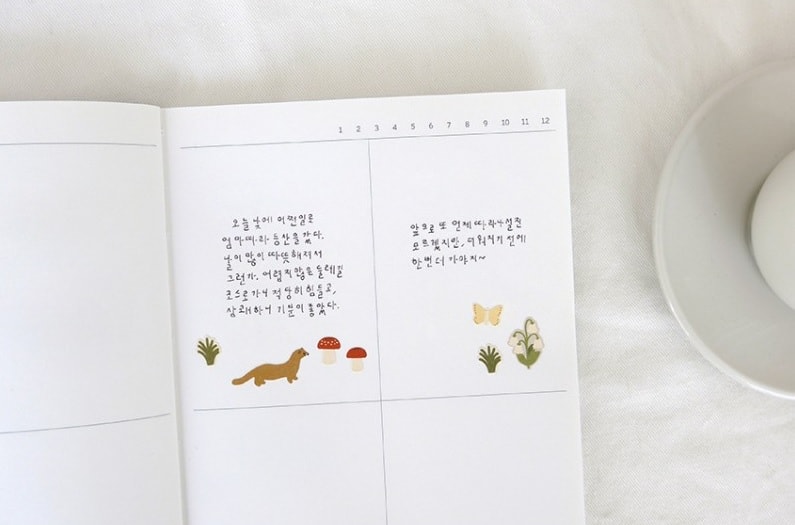 1 2 3 4 5 6 7 8 9 10 11 12
오늘 낮에 어쩐일로
엄마따라 등산을 갔다.
날이 많이 따뜻해져서
그런가. 어렵지않은 둘레길
코스로가니 적당히 힘들고,
상쾌하니 기분이 좋았다.
앞으로 또 언제 따라나설진
모르겠지만, 더워지기 전에
한번더 가야지~